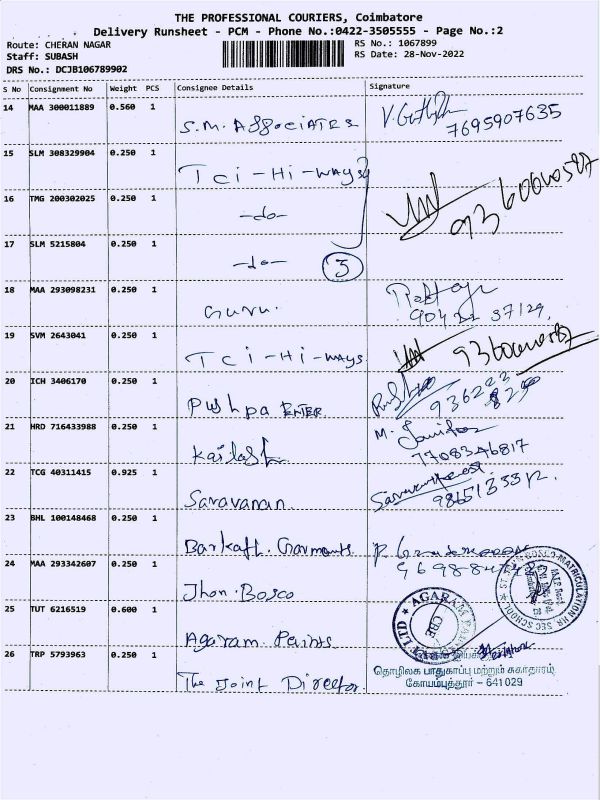 THE PROFESSIONAL COURIERS, Coimbatore
Delivery Runsheet - PCM - Phone No.:0422-3505555 - Page No.:2
Route: CHERAN NAGAR
RS No.: 1067899
Staff: SUBASH
RS Date: 28-Nov-2022
DRS No.: DCJB106789902
S No Consignment No Weight PCS Consignee Details Signature
14 MAA 300011889 0.560 1
S.M. Associates 7695907635
15 SLM 308329904 0.250 1
Tci-Hi-ways
16 TMG 200302025 0.250 1
-do-
17 SLM 5215804 0.250 1
-do- 3
18 MAA 293098231 0.250 1
Guru.
19 SVM 2643041 0.250 1
Tci-Hi-ways
20 ICH 3406170 0.250 1
Pushpa Enter.
21 HRD 716433988 0.250 1
Kailash 7708346817
22 TCG 40311415 0.925 1
Saravanan
23 BHL 100148468 0.250 1
Barkath. Garments
24 MAA 293342607 0.250 1
Jhon.Bosco
25 TUT 6216519 0.600 1
Agaram Paints
26 TRP 5793963 0.250 1
The Joint Director
தொழிலக பாதுகாப்பு மற்றும் சுகாதாரம்
கோயம்புத்தூர் - 641 029